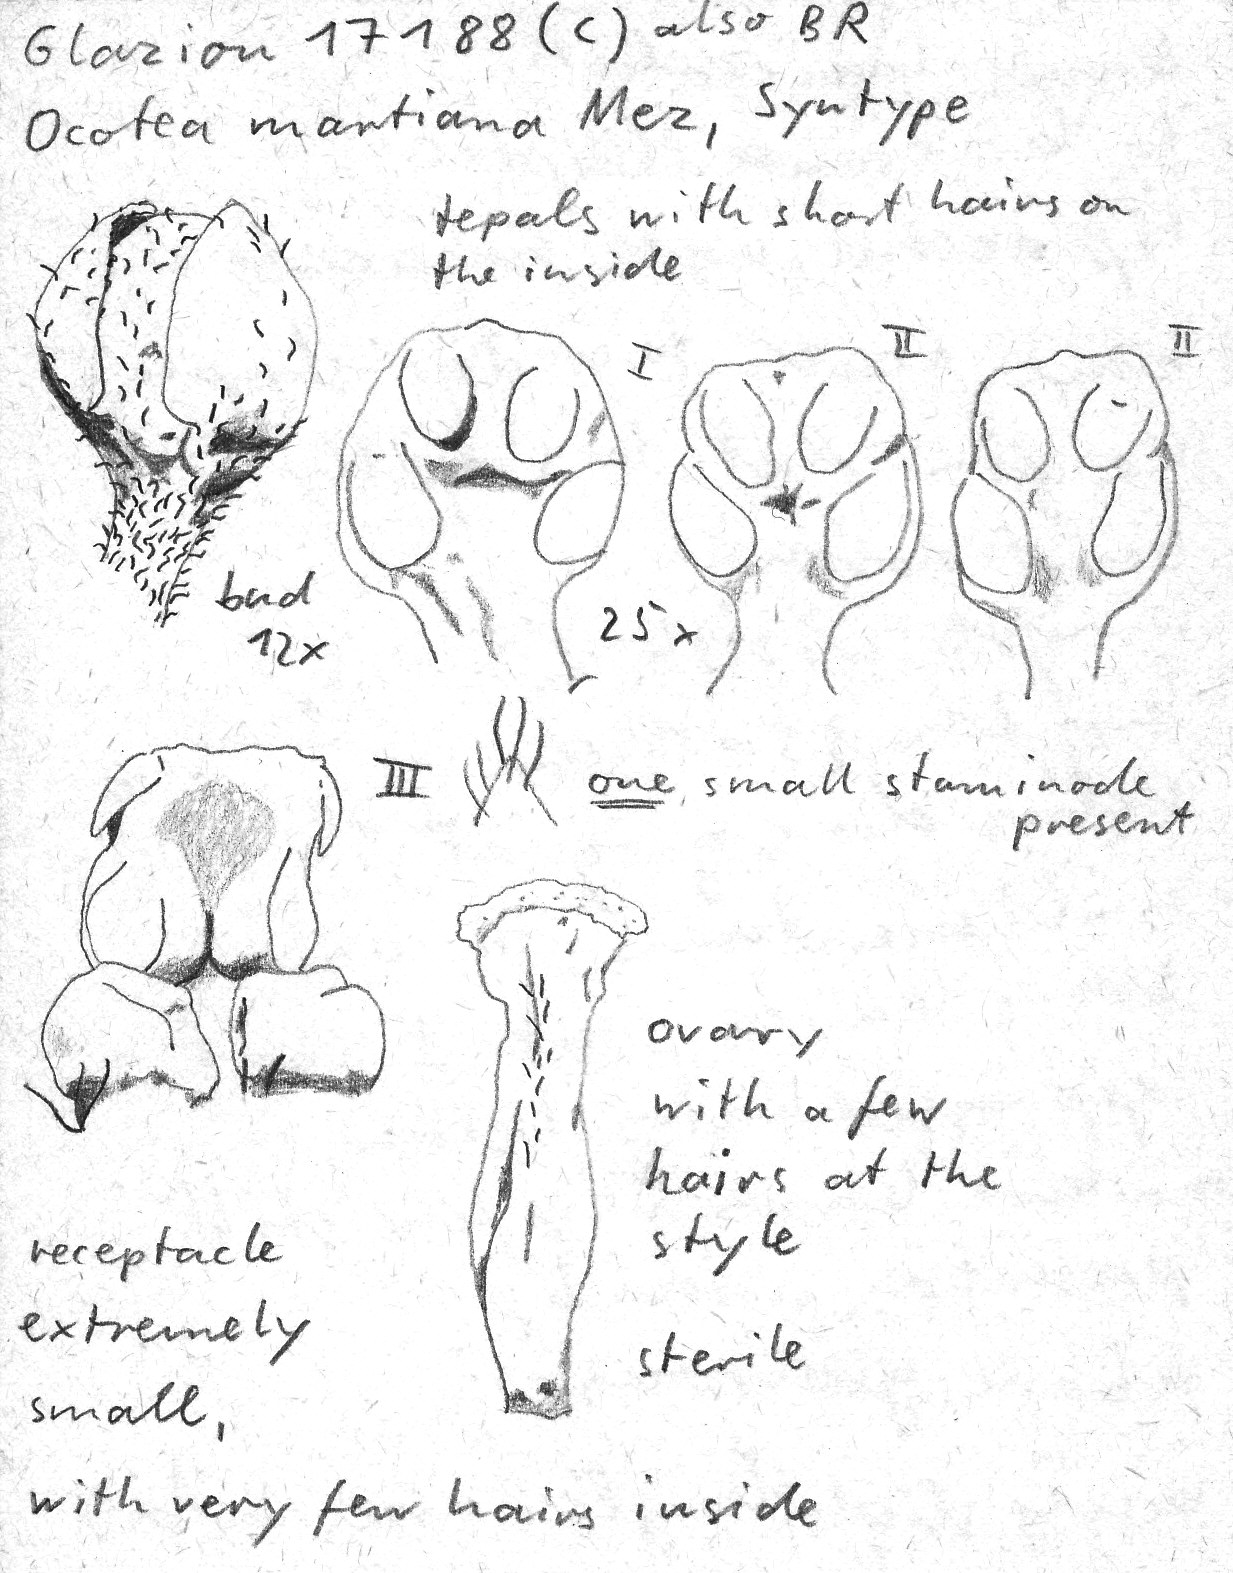 Glaziou 17188 (C) also BR
Ocotea martiana Mez, Syntype
tepals with short hairs on
the inside
I
II
II
bud
12x
25x
III
one small staminode
present
ovary
with a few
hairs at the
style
sterile
receptacle
extremely
small,
with very few hairs inside